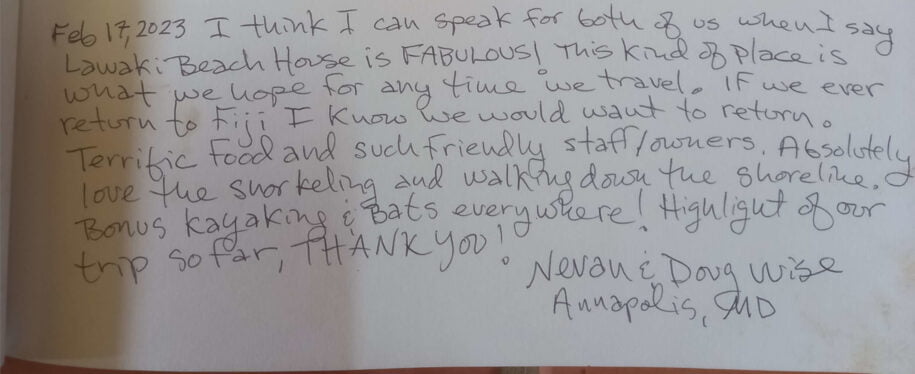 Feb 17, 2023 I think I can speak for both of us when I say
Lawaki Beach House is FABULOUS! This kind of place is
what we hope for any time we travel. If we ever
return to Fiji I know we would want to return.
Terrific food and such friendly staff/owners. Absolutely
love the snorkeling and walking down the shoreline.
Bonus kayaking & Bats everywhere! Highlight of our
trip so far, THANK YOU!
& Doug Wise
Annapolis, MD